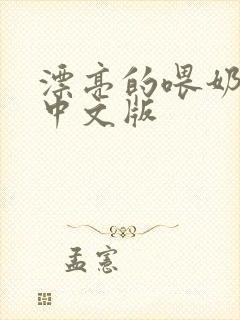 漂亮的喂奶
中文版
孟宪